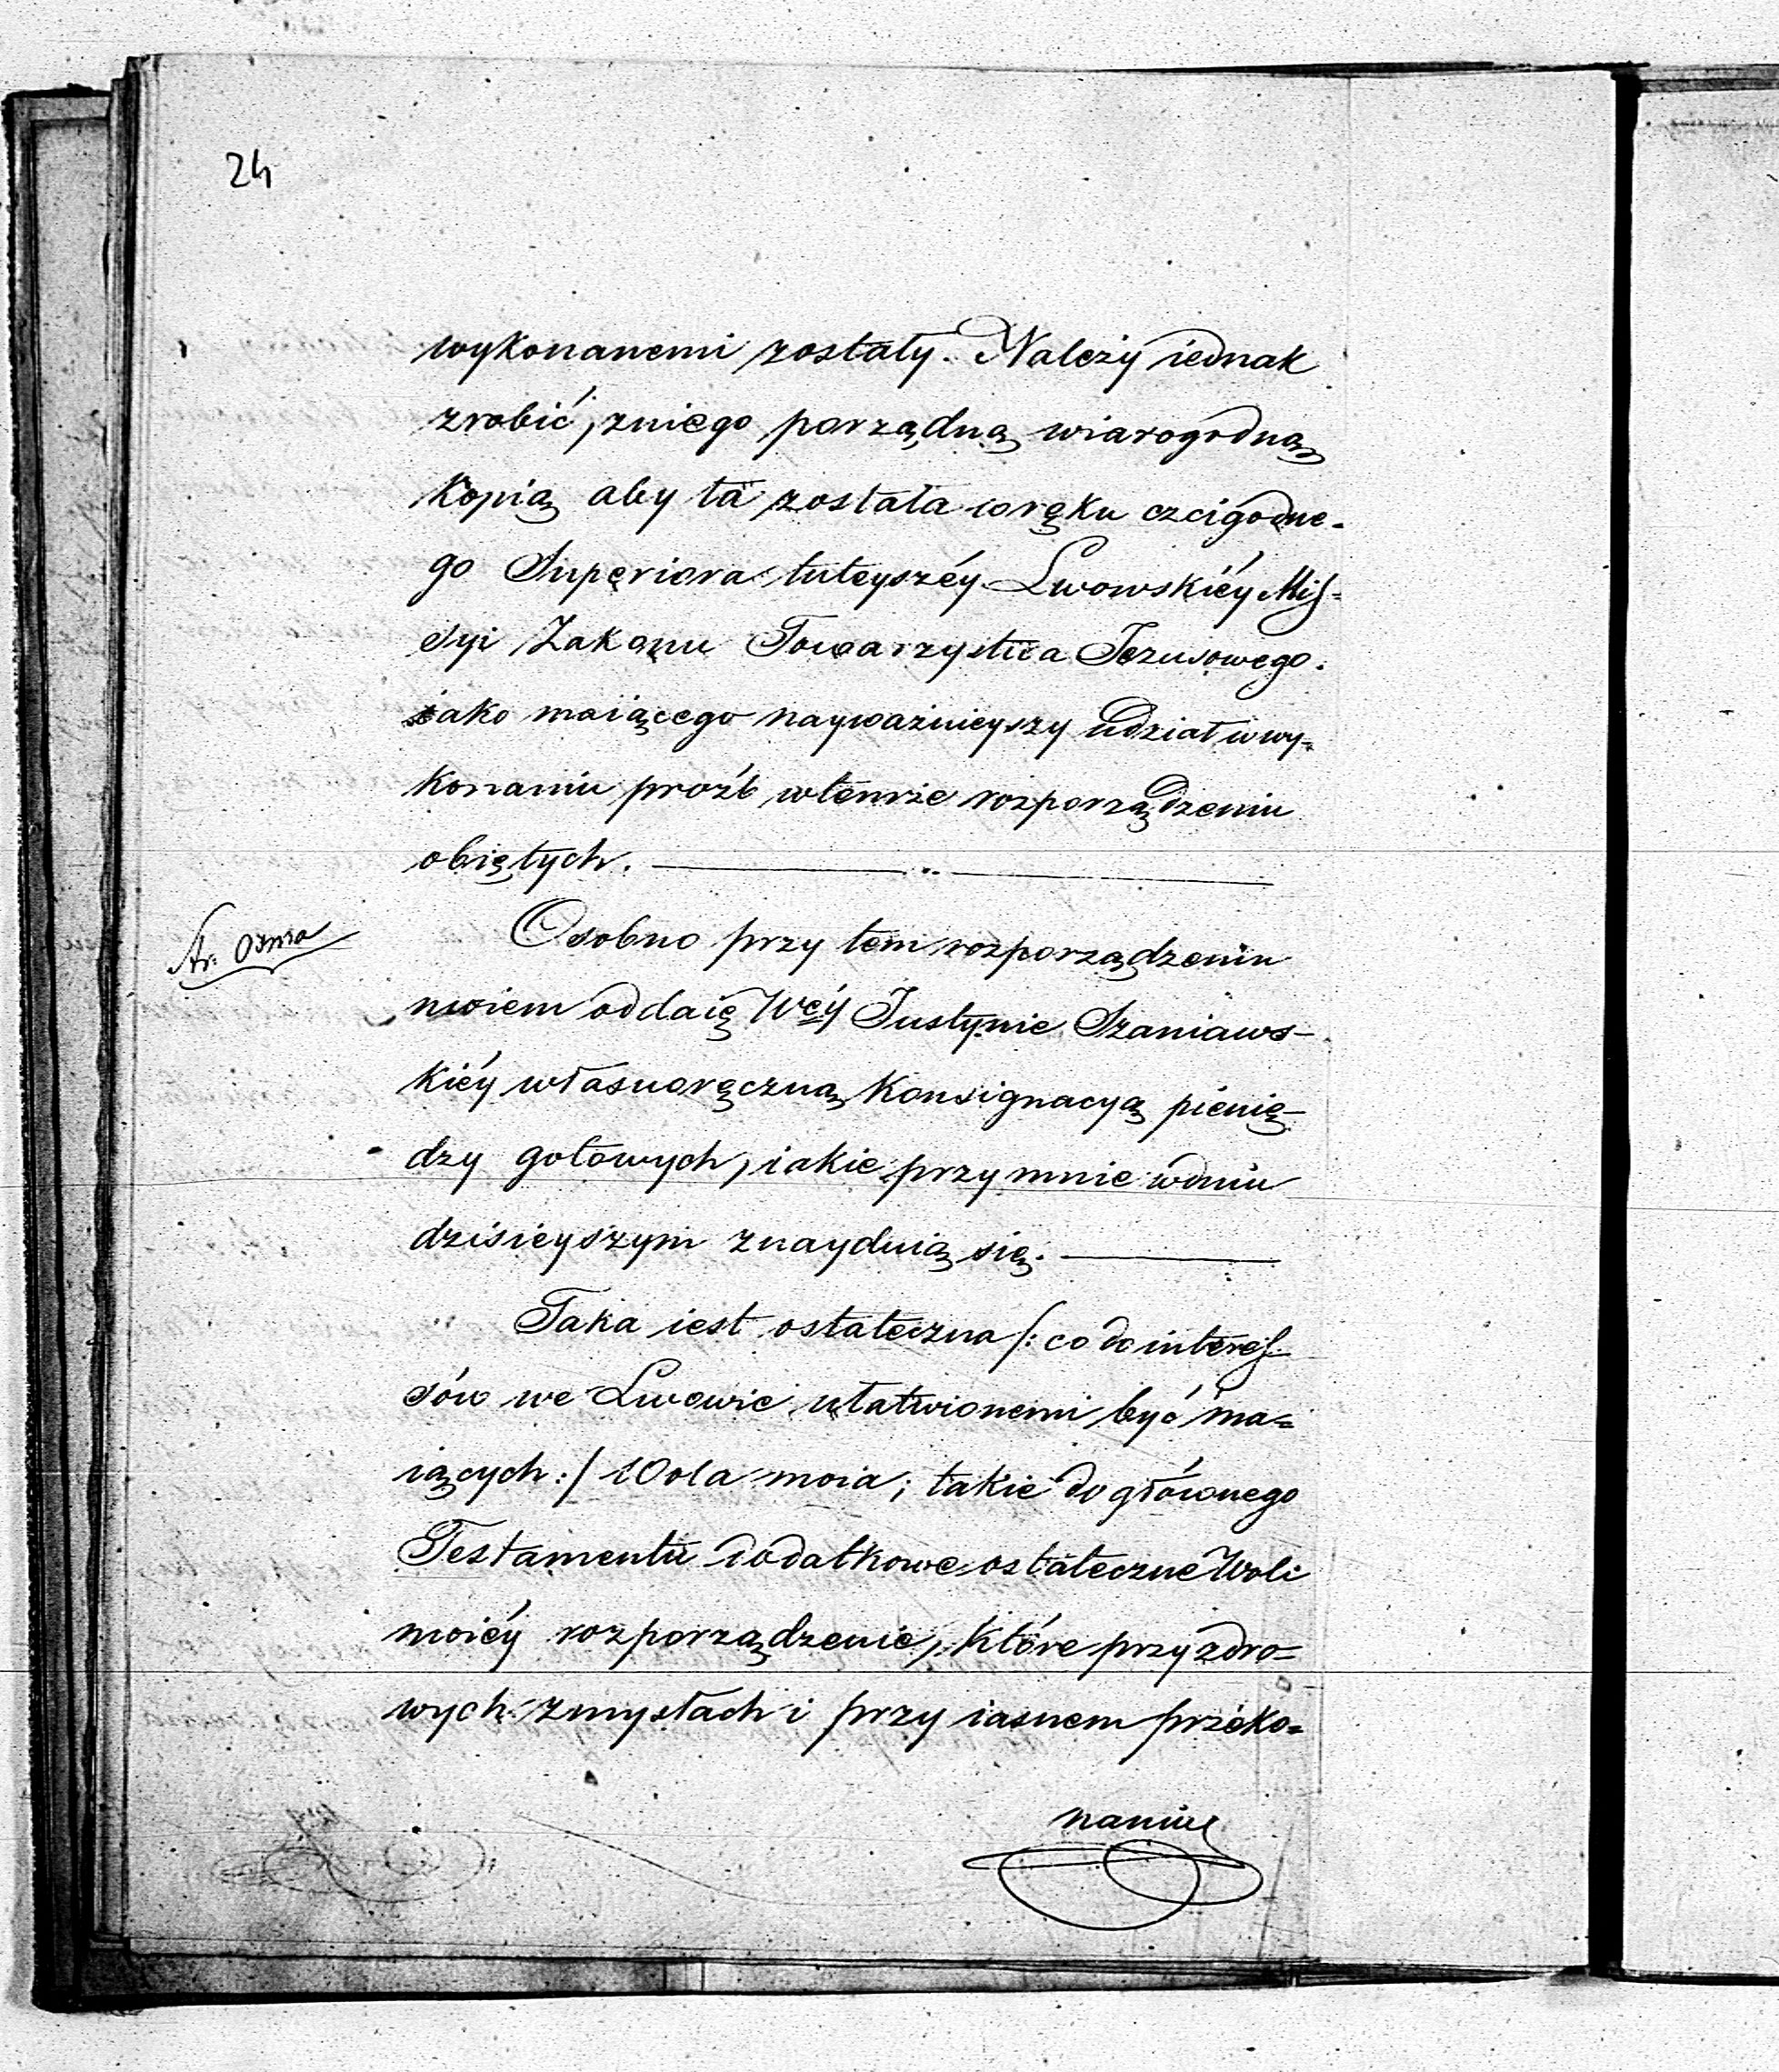 24
wykonanemi zostały. Należy iednak
zrobić, zniego porządną wiarogodną
Kopią aby ta została w ręku czcigodne-
go Superiora tuteyszéy Lwowskiéy Mis-
syi Zakonu Towarzystwa Jezusowego.
iako maiącego nayważnieyszy udział w wy-
konaniu proźb wtemże rozporządzeniu
obiętych.
Str. ósma
Osobno przy tem rozporządzeniu
moiem oddaię Wéy Justynie Szaniaws-
kiéy własnoręczną Konsignacyą pienię-
dzy gotowych, iakie przy mnie wdniu
dzisieyszym znayduią się.
Taka iest ostateczna /: co do interes-
sów we Lwowie ułatwionemi być ma-
iących :/ Wola moia; takie do głównego
Testamentu dodatkowe ostateczne Woli
moiéy rozporządzenie, Które przy zdro-
wych zmysłach i przy iasnem przeko-
naniu